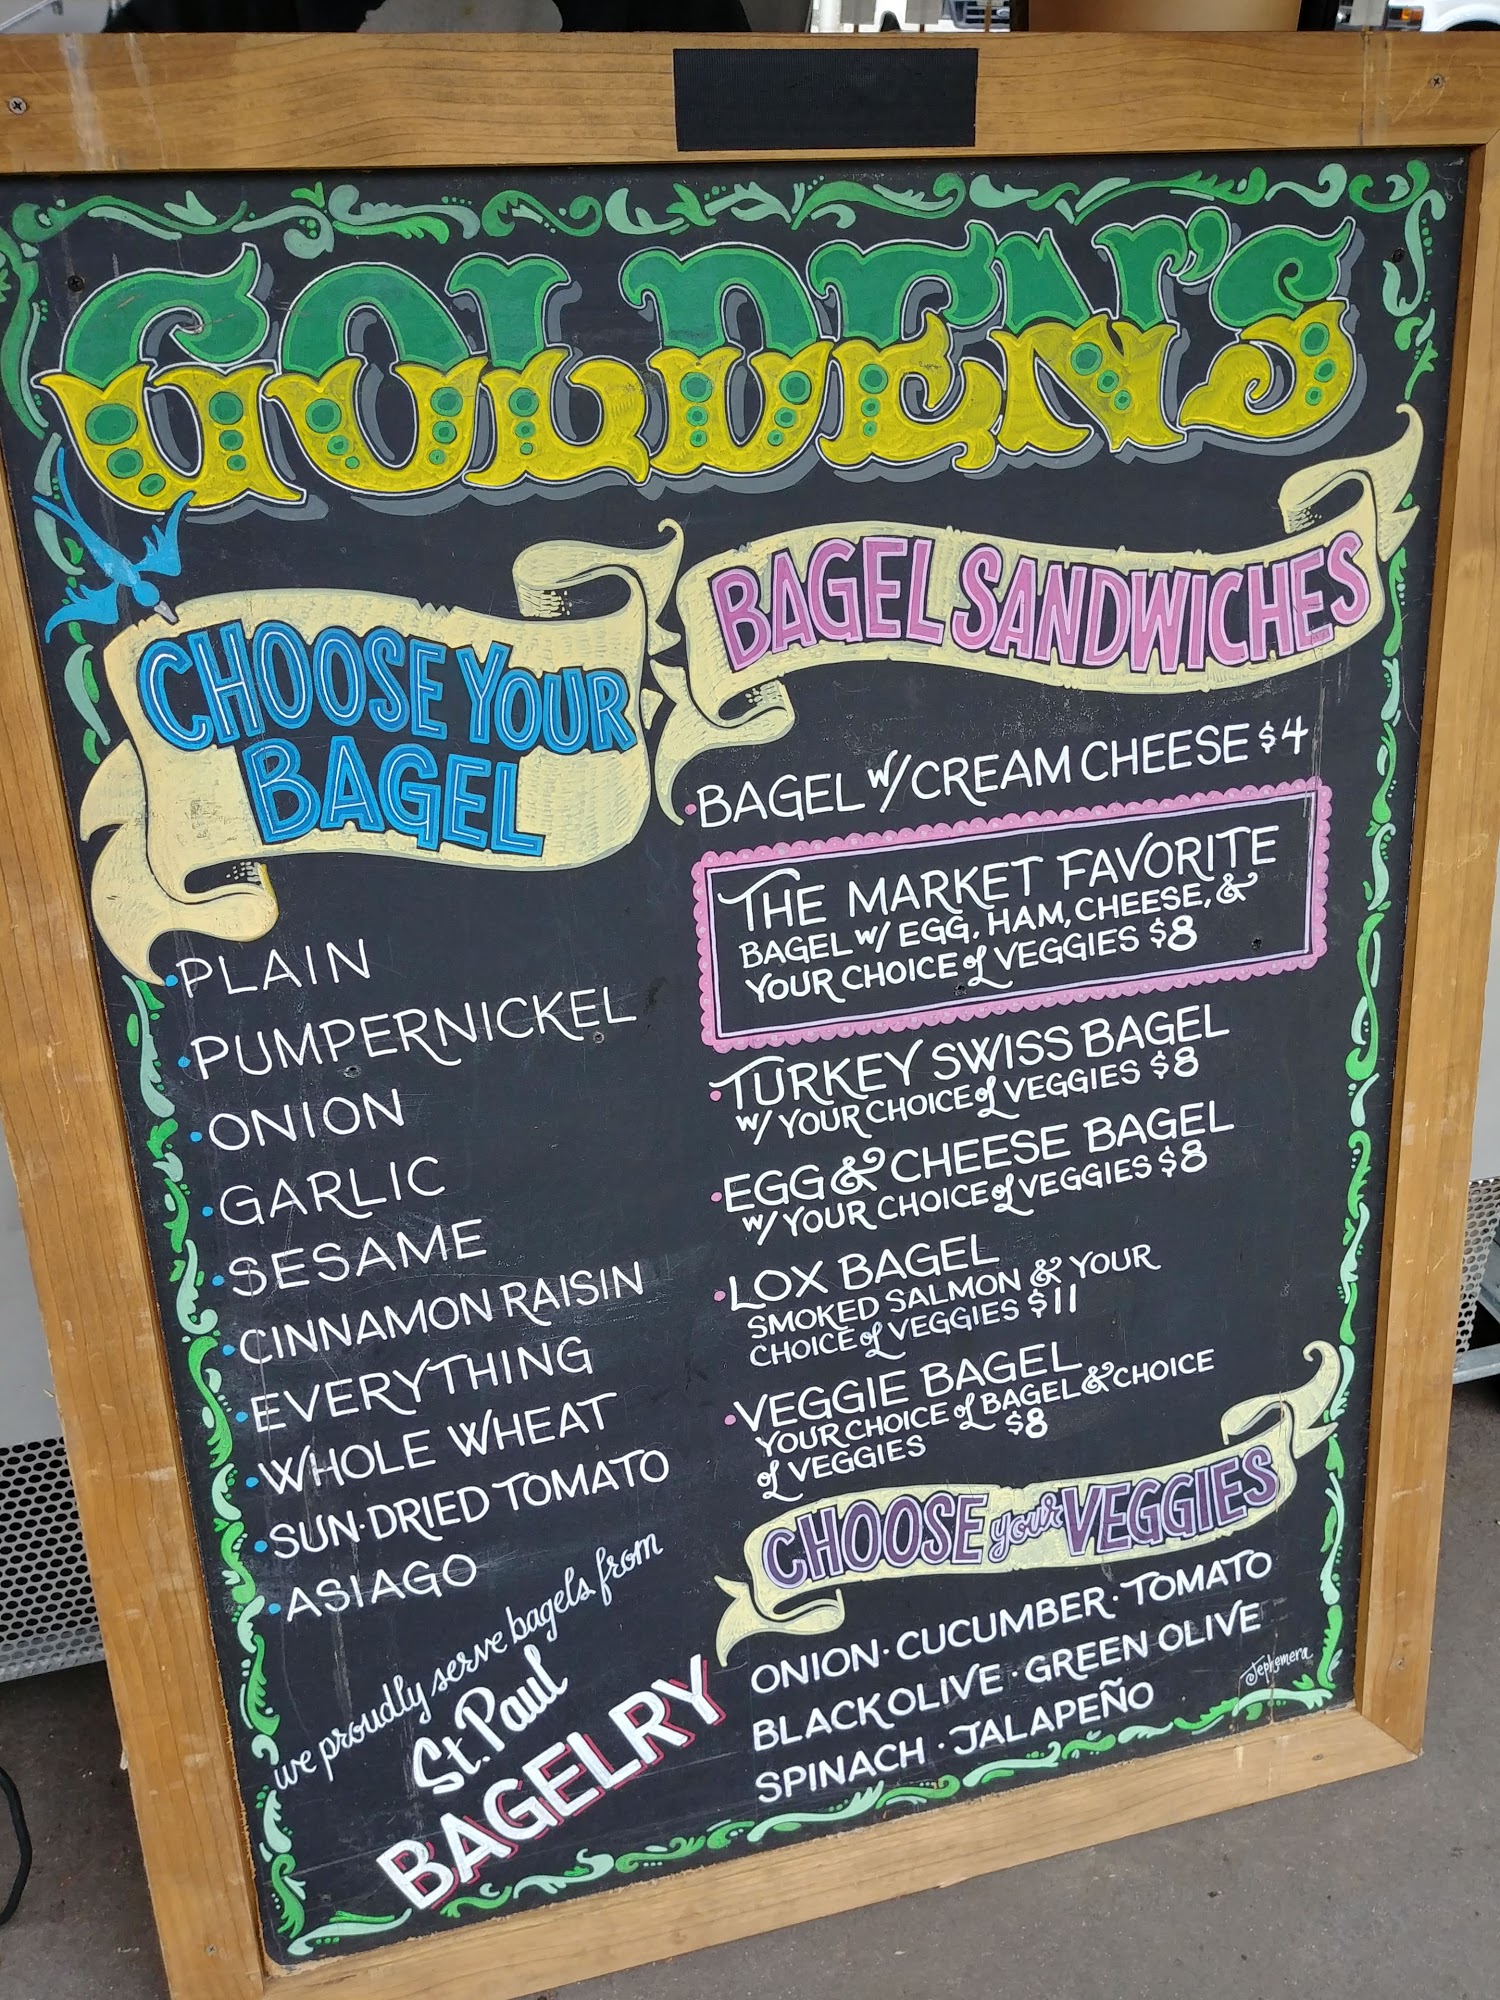 GOLDEN'S
CHOOSE YOUR
BAGEL
• PLAIN
• PUMPERNICKEL
• ONION
• GARLIC
• SESAME
• CINNAMON RAISIN
• EVERYTHING
• WHOLE WHEAT
• SUN·DRIED TOMATO
• ASIAGO
we proudly serve bagels from
St. Paul
BAGELRY
BAGEL SANDWICHES
• BAGEL W/ CREAM CHEESE $4
THE MARKET FAVORITE
BAGEL W/ EGG, HAM, CHEESE, &
YOUR CHOICE of VEGGIES $8
• TURKEY SWISS BAGEL
W/ YOUR CHOICE of VEGGIES $8
• EGG & CHEESE BAGEL
W/ YOUR CHOICE of VEGGIES $8
• LOX BAGEL
SMOKED SALMON & YOUR
CHOICE of VEGGIES $11
• VEGGIE BAGEL
YOUR CHOICE of BAGEL & CHOICE
of VEGGIES $8
CHOOSE your VEGGIES
ONION · CUCUMBER · TOMATO
BLACK OLIVE · GREEN OLIVE
SPINACH · JALAPEÑO